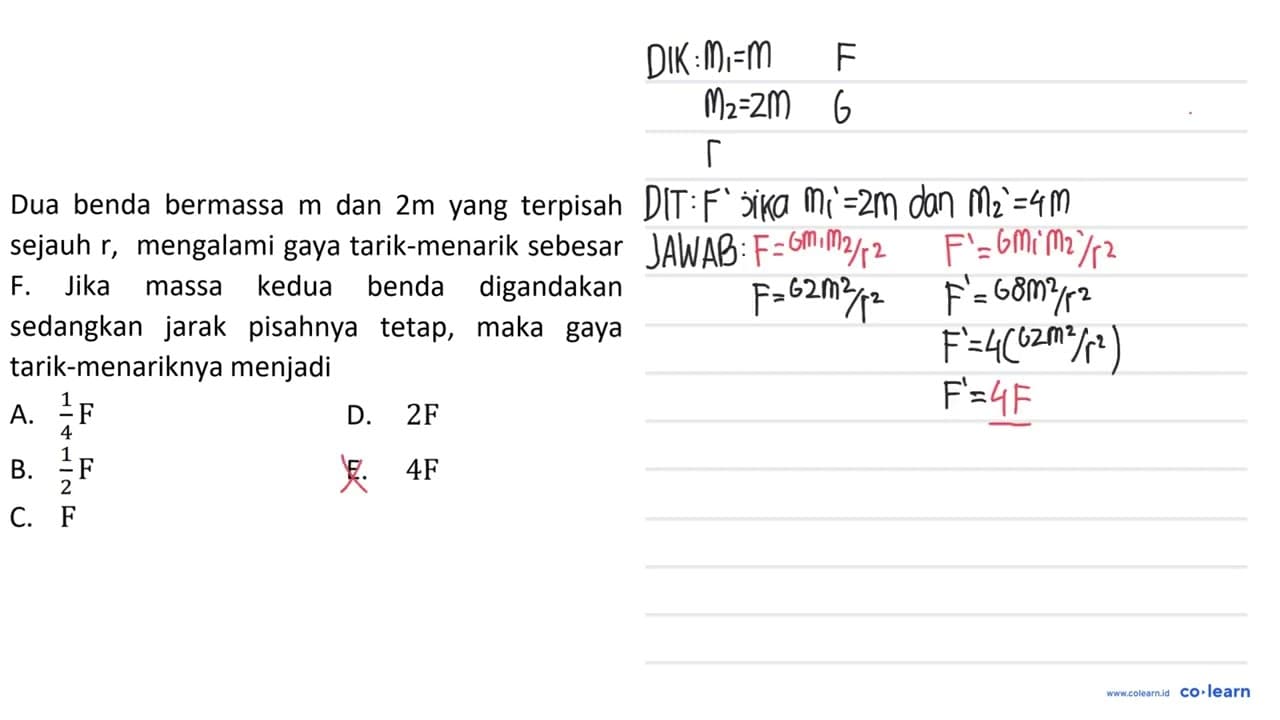 Dua benda bermassa m dan 2m yang terpisah
sejauh r, mengalami gaya tarik-menarik sebesar
F. Jika massa kedua benda digandakan
sedangkan jarak pisahnya tetap, maka gaya
tarik-menariknya menjadi
A. 1/4 F
B. 1/2 F
C. F
D. 2F
E. 4F
DIK: m₁=m F
m₂=2m G
r
DIT: F' jika m₁'=2m dan m₂'=4m
JAWAB: F=Gm₁m₂/r² F'=Gm₁'m₂'/r²
F=G2m²/r² F'=G8m²/r²
F'=4(G2m²/r²)
F'=4F
www.colearn.id co·learn